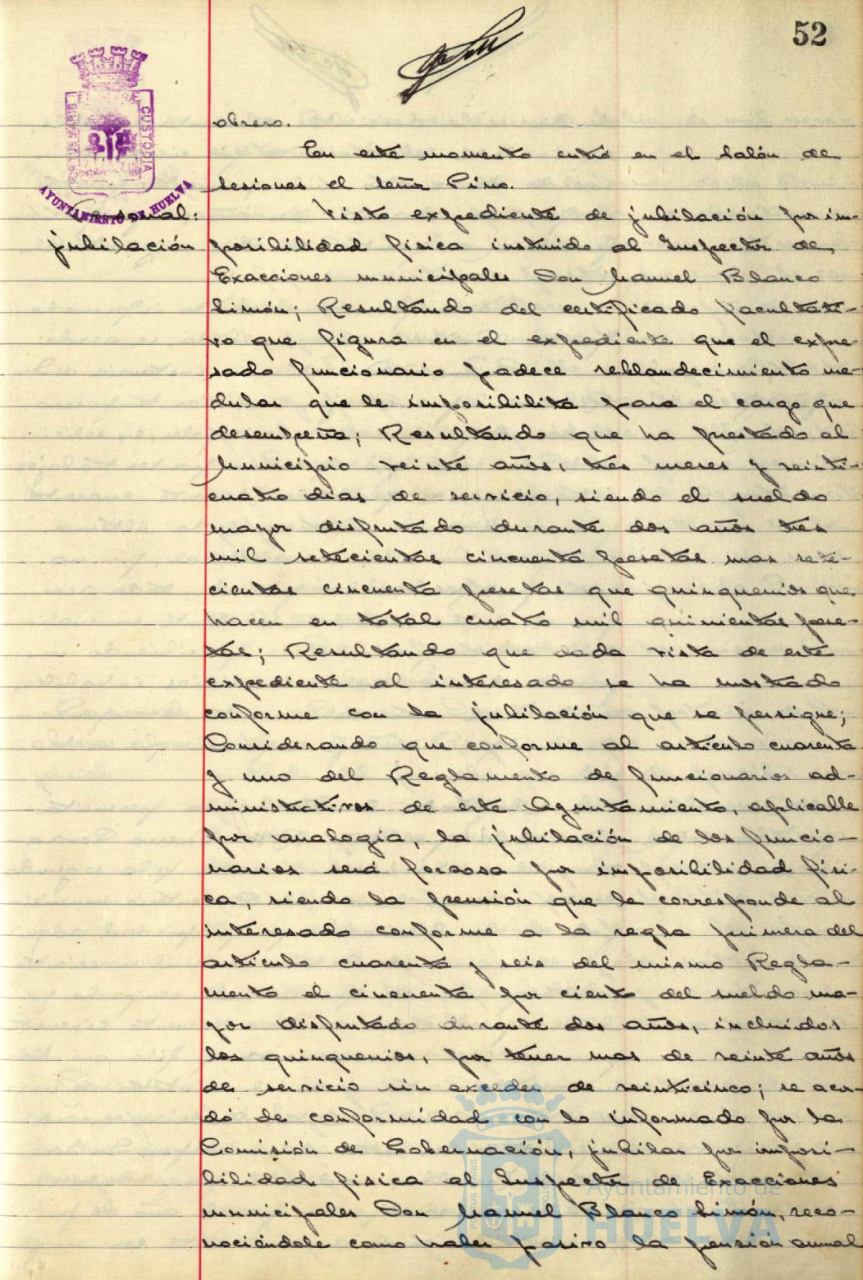 52
PORTUS MARIS
CUSTODIA
AYUNTAMIENTO DE HUELVA
obrero.
En este momento entró en el Salón de
sesiones el señor Pino.
Personal:
jubilación
Visto expediente de jubilación por im-
posibilidad física instruido al Inspector de
Exacciones municipales Don Manuel Blanco
Simón; Resultando del certificado facultati-
vo que figura en el expediente que el expre-
sado funcionario padece reblandecimiento me-
dular que le imposibilita para el cargo que
desempeña; Resultando que ha prestado al
Municipio veinte años, tres meses y veinti-
cuatro dias de servicio, siendo el sueldo
mayor disfrutado durante dos años tres
mil setecientas cincuenta pesetas mas sete-
cientas cincuenta pesetas que quinquenios que
hacen en total cuatro mil quinientas pese-
tas; Resultando que dada vista de este
expediente al interesado se ha mostrado
conforme con la jubilación que se persigue;
Considerando que conforme al artículo cuarenta
y uno del Reglamento de funcionarios ad-
ministrativos de este Ayuntamiento, aplicable
por analogia, la jubilación de los funcio-
narios será forzosa por imposibilidad físi-
ca, siendo la pensión que le corresponde al
interesado conforme a la regla primera del
artículo cuarenta y seis del mismo Regla-
mento el cincuenta por ciento del sueldo ma-
yor disfrutado durante dos años, incluidos
los quinquenios, por tener mas de veinte años
de servicio sin exceder de veinticinco; se acor-
dó de conformidad con lo informado por la
Comisión de Gobernación, jubilar por imposi-
bilidad física al Inspector de Exacciones
municipales Don Manuel Blanco Simón, reco-
nociéndole como haber pasivo la pensión anual
Ayuntamiento de
HUELVA